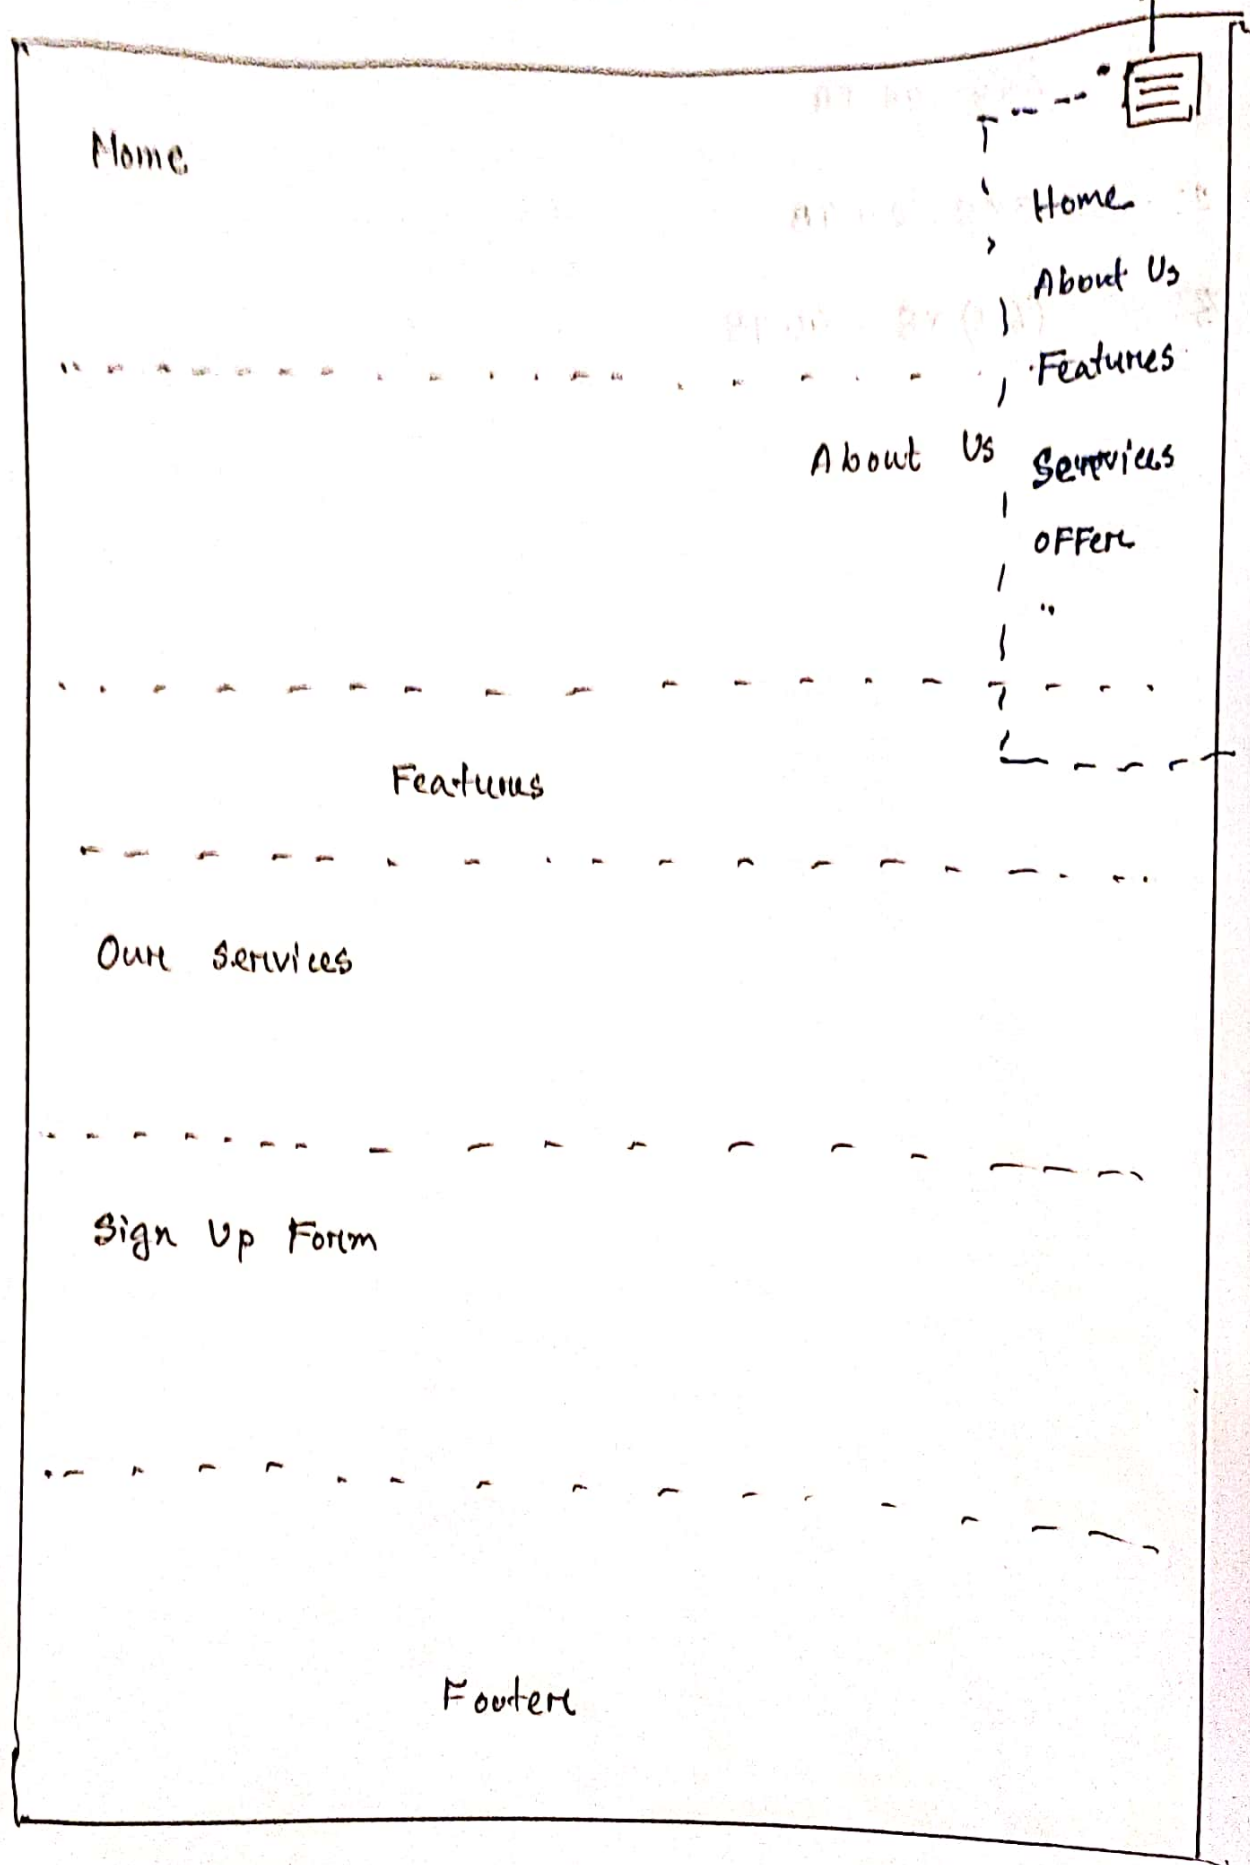 Home
Home
About Us
Features
About Us
Services
Offer
"
Features
Our Services
Sign Up Form
Footer